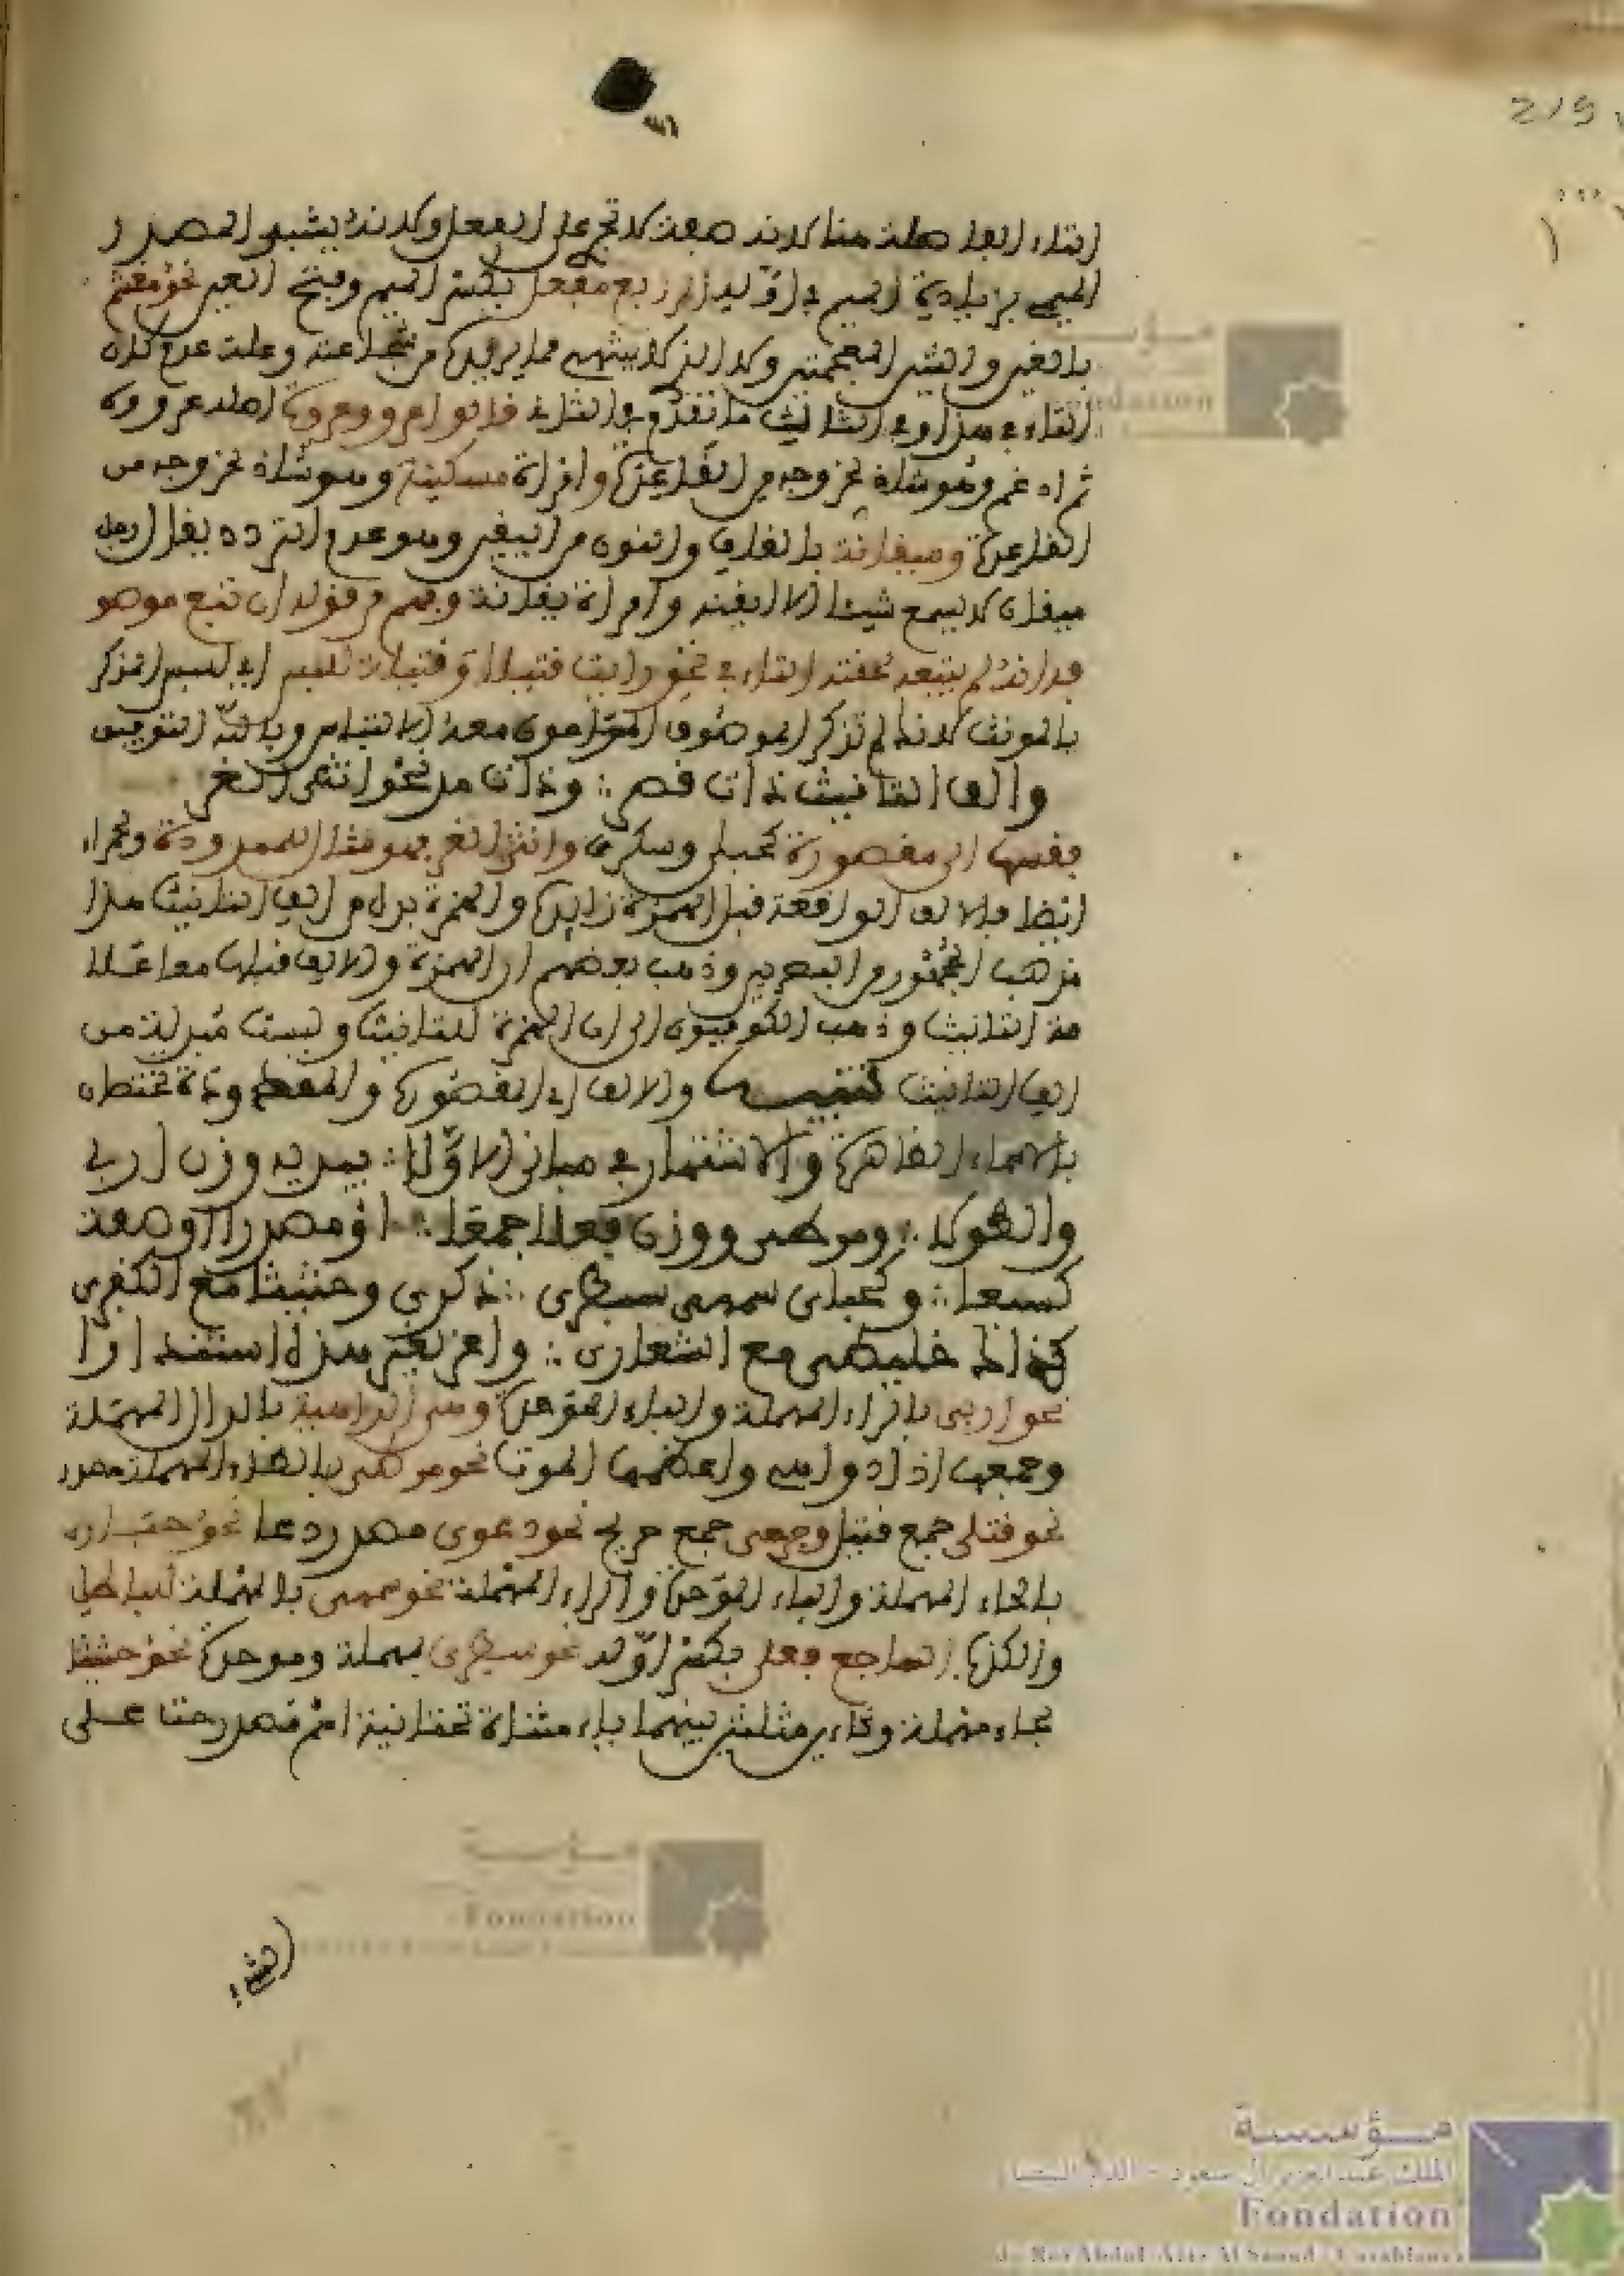 التاء الفا صلة هنا لانه صفة لا تجري على الفعل ولانه يشبه المصدر
الميمي بزيادة الميم في اوله الرابع مفعل بكسر الميم وفتح العين نحو مغشم
بالغين والشين المعجمتين وهو الذي لا ينتهي عما يريده من شجاعته وعلة عدم لحاق
التاء في هذا وفي الثالث ما تقدم في الثاني قالوا عدو وعدوة اصله عدووة
ثم ادغم وهو شاذ لخروجه من القاعدة وامراة مسكينة وهو شاذ لخروجه من
القاعدة وميقانة بالقاف والنون من اليقين وهو عدم التردد يقال رجل
ميقان لا يسمع شيئا الا ايقنه وامراة ميقانة وفهم من قوله ان تبع موصو
فه انه لم يتبعه لحقته التاء في نحو رايت قتيلا وقتيلة للبس اي للبس المذكر
بالمونث لانه لم تذكر الموصوف المامون معه الالتباس وبالله التوفيق
والف التانيث ذات قصر ∴ وذات مد نحو انثى الغر
فقسمها الى مقصورة كحبلى وسكرى وانثى الغر هو مثال الممدودة وحمراء
ايضا فالالف الواقعة قبل الهمزة زايدة والهمزة بدل من الف التانيث هذا
مذهب الجمهور من البصريين وذهب بعضهم ان الهمزة والالف قبلها معا علا
مة التانيث وذهب الكوفيون الى ان الهمزة للتانيث وليست مبدلة من
الف التانيث تنبيه والالف اي المقصورة والممدودة تختصان
بالاسماء الظاهرة والاشتهار في مباني الاولى ∴ يبديه وزن اربى
والطولى ∴ ومرطى ووزن فعلى جمعا ∴ او مصدرا او صفة
كشبعى ∴ وكحبارى سمهى سبطرى ∴ ذكرى وحثيثى مع الكفرى
كذاك خليطى مع الشقارى ∴ واعز لغير هذه استندارا
نحو اربى بالراء المهملة والباء الموحدة وهي الداهية بالدال المهملة
وجمعها اذا دواهي واعظمها الموت نحو مرطى بالطاء المهملة مصدر
نحو قتلى جمع قتيل وجرحى جمع جريح نحو دعوى مصدر دعا نحو حبارى
بالحاء المهملة والباء الموحدة والراء المهملة نحو سمهى بالمهملة للباطل
والكذب السابع فعلى بكسر اوله نحو سبطرى بمهملة وموحدة نحو حثيثى
بحاء مهملة وثاءين مثلثتين بينهما ياء مثناة تحتانية اسم مصدر حث على
الشيء
مؤسسة
الملك عبد العزيز آل سعود - الدار البيضاء
Fondation
du Roi Abdul-Aziz Al Saoud - Casablanca